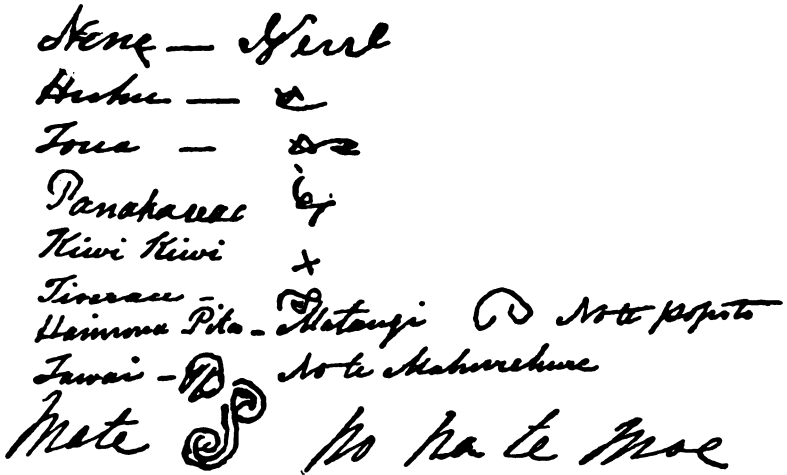 Nene —
Huhu —
Toua —
Panakareao
Kiwi Kiwi
Tirarau -
Haimona Pita - Matangi No te popoto
Tawai - No te Mahurehure
Mate po ka te moe